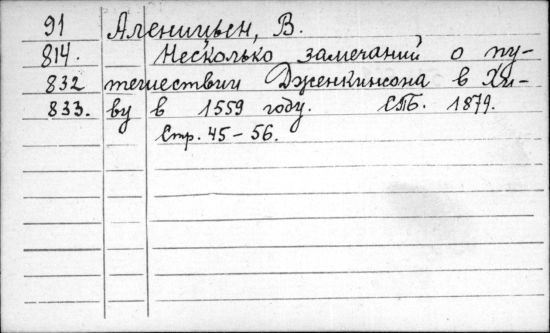 91 Аленицын, В.
814. Несколько замечаний о пу-
832 тешествии Дженкинсона в Хи-
833. ву в 1559 году. СПБ. 1879.
Стр. 45-56.